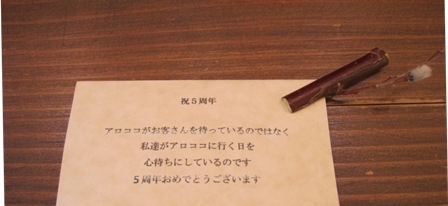 祝５周年
アロココがお客さんを待っているのではなく
私達がアロココに行く日を
心待ちにしているのです
５周年おめでとうございます